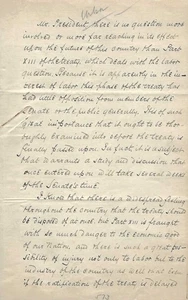 Mr. President, there is no question more
involved or more far reaching in its effect
upon the future of this country than Part
XIII of the treaty, which deals with the labor
question. Because it is apparently in the in-
terest of labor this phase of the treaty has
had little opposition from members of the
Senate or the public generally. It is of such
great importance that it ought to be tho-
roughly examined into before the treaty is
finally passed upon. In fact, it is a subject
that warrants a study and discussion that
once entered upon will take several weeks
of the Senate's time.
I know that there is a widespread feeling
throughout the country that the treaty should
be disposed of at once. But Part XIII is fraught
with so much danger to the economic good
of our Nation, and there is such a great pos-
sibility of injury not only to labor but to the
industry of the country as well that even
if the ratification of the treaty is delayed